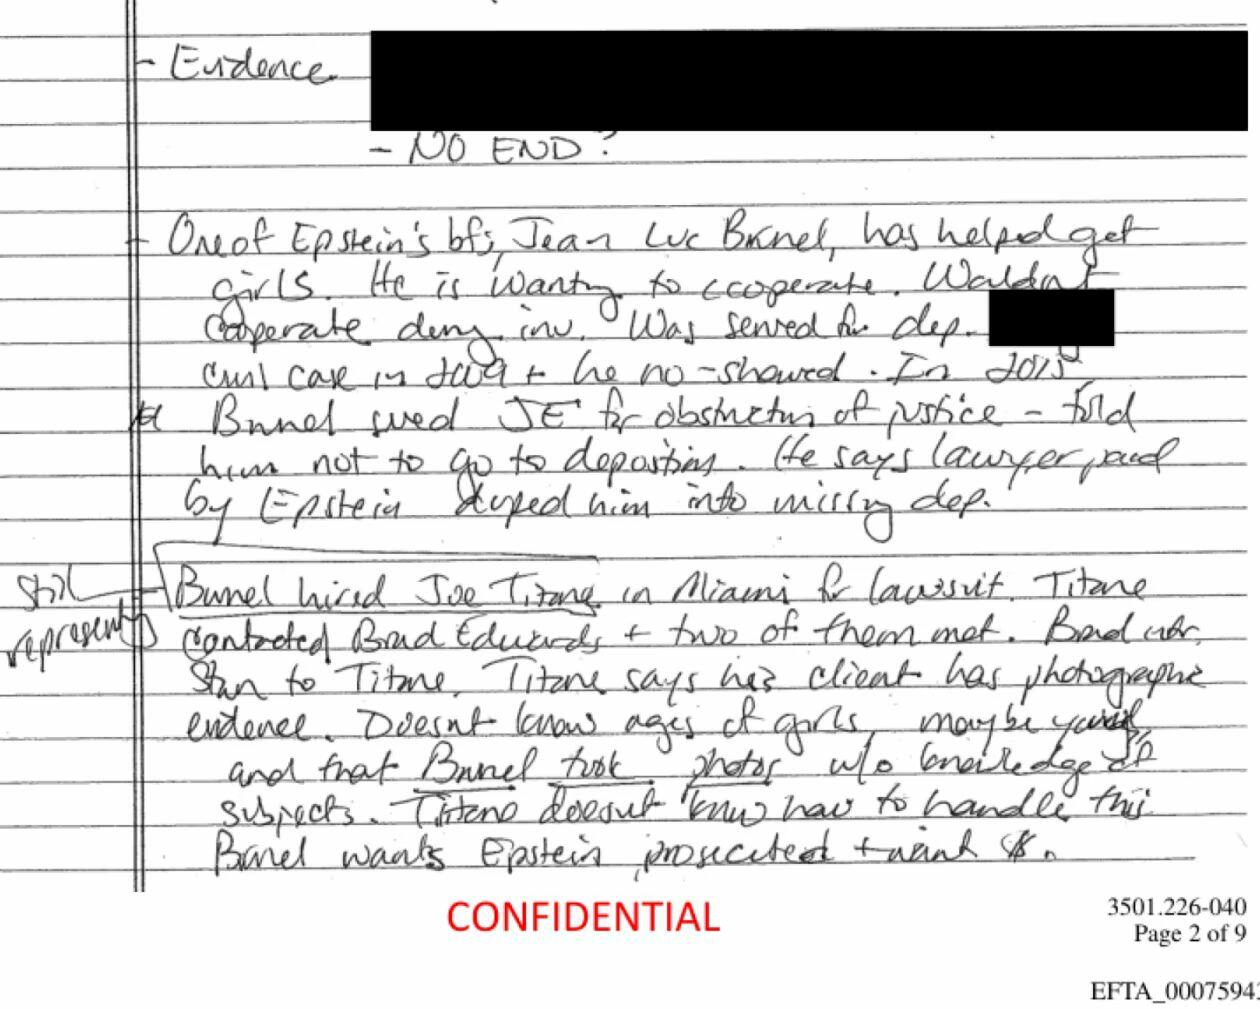 - Evidence
- NO END?
- One of Epstein's bfs, Jean Luc Brunel, has helped get
girls. He is wanting to cooperate. Wouldn't
cooperate during inv. Was served for dep.
civil case in 2009 + he no-showed. In 2015
Brunel sued JE for obstruction of justice - told
him not to go to deposition. He says lawyer paid
by Epstein duped him into missing dep.
Still
represents
- Brunel hired Joe Titone in Miami for lawsuit. Titone
contacted Brad Edwards + two of them met. Brad
Stan to Titone. Titone says his client has photographic
evidence. Doesn't know ages of girls, maybe
and that Brunel took photos w/o knowledge of
subjects. Titone doesn't know how to handle this
Brunel wants Epstein prosecuted + want $.
CONFIDENTIAL
3501.226-040
Page 2 of 9
EFTA_0007594